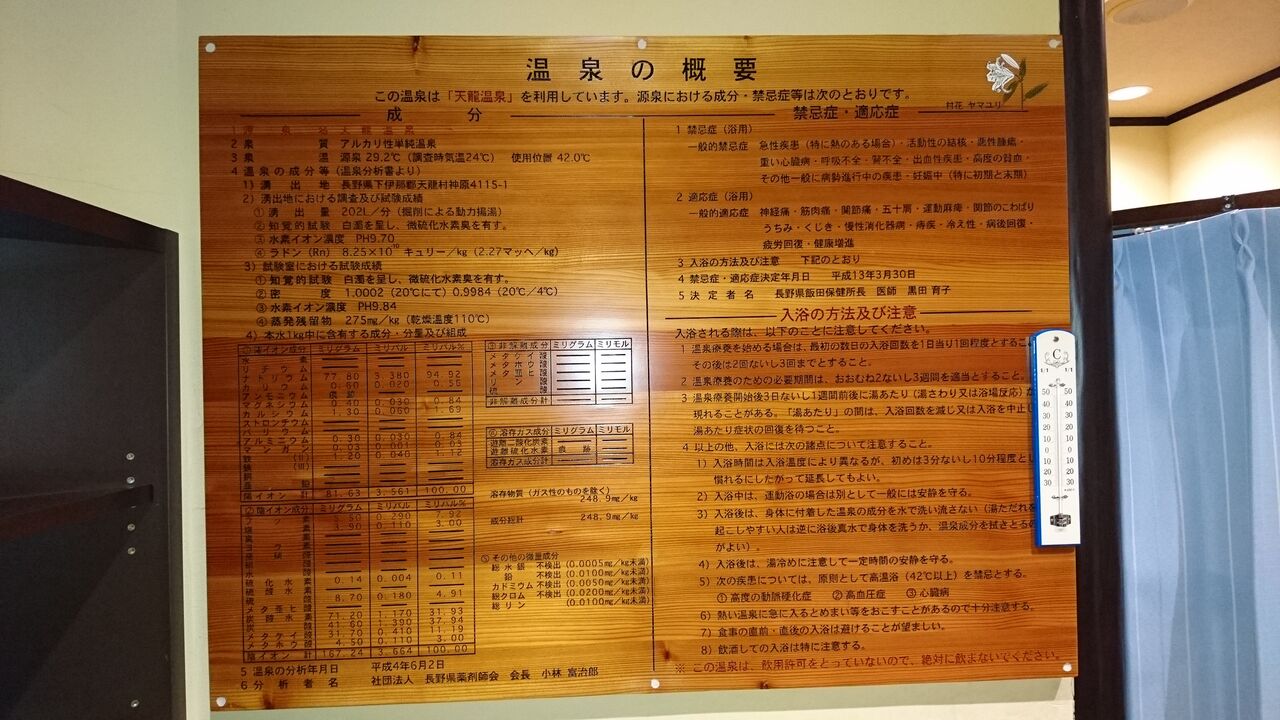 温泉の概要
この温泉は「天龍温泉」を利用しています。源泉における成分・禁忌症等は次のとおりです。
村花 ヤマユリ
成分
2 泉質 アルカリ性単純温泉
3 泉温 源泉 29.2℃（調査時気温24℃） 使用位置 42.0℃
4 温泉の成分等（温泉分析書より）
1）湧出地 長野県下伊那郡天龍村神原4115-1
2）湧出地における調査及び試験成績
① 湧出量 202L／分（掘削による動力揚湯）
② 知覚的試験 白濁を呈し、微硫化水素臭を有す。
③ 水素イオン濃度 PH9.70
④ ラドン（Rn） 8.25×10 キュリー／kg（2.27マッヘ／kg）
3）試験室における試験成績
① 知覚的試験 白濁を呈し、微硫化水素臭を有す。
② 密度 1.0002（20℃にて）0.9984（20℃／4℃）
③ 水素イオン濃度 PH9.84
④ 蒸発残留物 275mg／kg（乾燥温度110℃）
4）本水1kg中に含有する成分・分量及び組成
① 陽イオン成分 ミリグラム ミリバル ミリバル%
ナトリウム 77.80 3.380 94.92
カリウム 0.60 0.020 0.55
アンモニウム 痕跡
マグネシウム 0.40 0.030 0.84
カルシウム 1.30 0.060 1.69
ストロンチウム
バリウム
アルミニウム 0.30 0.030 0.84
マンガン 0.03 0.001 0.03
鉄（II） 1.20 0.040 1.12
陽イオン計 81.63 3.561 100.00
② 陰イオン成分 ミリグラム ミリバル ミリバル%
硫化水素 0.14 0.004 0.11
硫酸 8.70 0.180 4.91
メタ亜ヒ酸
炭酸水素 71.20 1.170 31.93
メタケイ酸 31.70 0.410 11.19
メタホウ酸 4.50 0.110 3.00
陰イオン計 167.24 3.664 100.00
③ 非解離成分 ミリグラム ミリモル
非解離成分計
④ 溶存ガス成分 ミリグラム ミリモル
遊離二酸化炭素
遊離硫化水素 痕跡
溶存ガス成分計
溶存物質（ガス性のものを除く）
248.9mg／kg
成分総計 248.9mg／kg
⑤ その他の微量成分
総水銀 不検出（0.0005mg／kg未満）
鉛 不検出（0.0100mg／kg未満）
カドミウム 不検出（0.0050mg／kg未満）
総クロム 不検出（0.0200mg／kg未満）
総リン （0.0100mg／kg未満）
5 温泉の分析年月日 平成4年6月2日
6 分析者名 社団法人 長野県薬剤師会 会長 小林 富治郎
禁忌症・適応症
1 禁忌症（浴用）
一般的禁忌症 急性疾患（特に熱のある場合）・活動性の結核・悪性腫瘍・
重い心臓病・呼吸不全・腎不全・出血性疾患・高度の貧血・
その他一般に病勢進行中の疾患・妊娠中（特に初期と末期）
2 適応症（浴用）
一般的適応症 神経痛・筋肉痛・関節痛・五十肩・運動麻痺・関節のこわばり
うちみ・くじき・慢性消化器病・痔疾・冷え性・病後回復・
疲労回復・健康増進
3 入浴の方法及び注意 下記のとおり
4 禁忌症・適応症決定年月日 平成13年3月30日
5 決定者名 長野県飯田保健所長 医師 黒田 育子
入浴の方法及び注意
入浴される際は、以下のことに注意してください。
1 温泉療養を始める場合は、最初の数日の入浴回数を1日当り1回程度とするこ
その後は2回ないし3回までとすること。
2 温泉療養のための必要期間は、おおむね2ないし3週間を適当とすること。
3 温泉療養開始後3日ないし1週間前後に湯あたり（湯さわり又は浴場反応）が
現れることがある。「湯あたり」の間は、入浴回数を減じ又は入浴を中止し
湯あたり症状の回復を待つこと。
4 以上の他、入浴には次の諸点について注意すること。
1）入浴時間は入浴温度により異なるが、初めは3分ないし10分程度とし
慣れるにしたがって延長してもよい。
2）入浴中は、運動浴の場合は別として一般には安静を守る。
3）入浴後は、身体に付着した温泉の成分を水で洗い流さない（湯ただれを
起こしやすい人は逆に浴後真水で身体を洗うか、温泉成分を拭きとるの
がよい）。
4）入浴後は、湯冷めに注意して一定時間の安静を守る。
5）次の疾患については、原則として高温浴（42℃以上）を禁忌とする。
① 高度の動脈硬化症 ② 高血圧症 ③ 心臓病
6）熱い温泉に急に入るとめまい等をおこすことがあるので十分注意する。
7）食事の直前・直後の入浴は避けることが望ましい。
8）飲酒しての入浴は特に注意する。
※ この温泉は、飲用許可をとっていないので、絶対に飲まないでください。
C
50 50
40 40
30 30
20 20
10 10
0 0
10 10
20 20
30 30